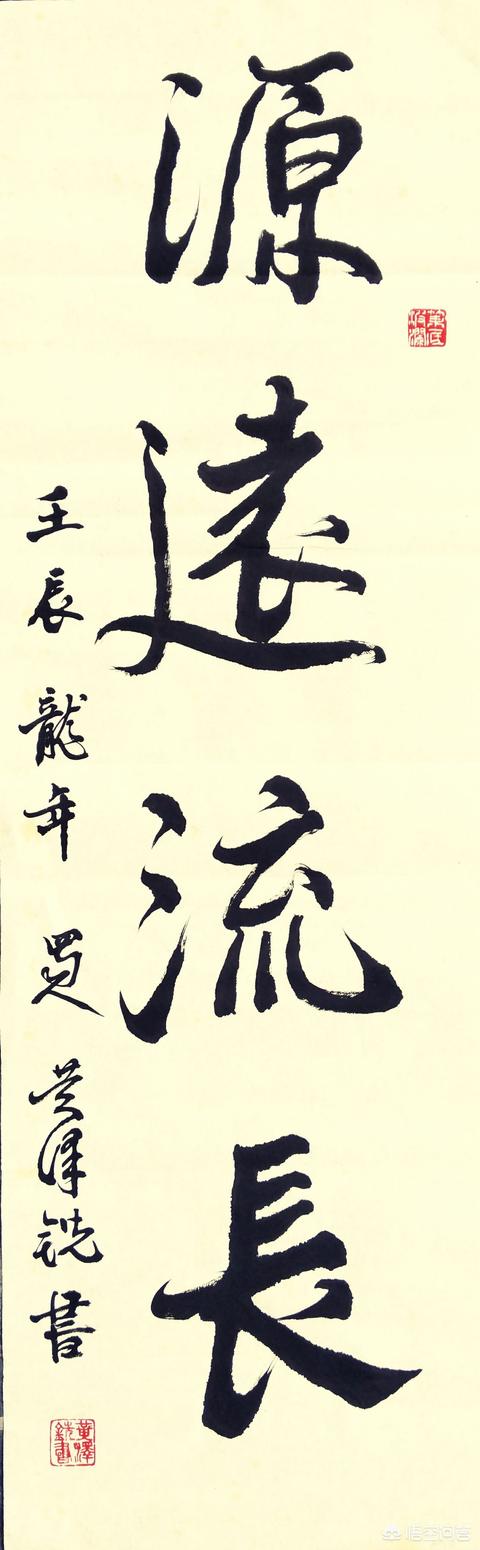 源遠流長
壬辰龍年夏黄澤铣書
黄澤銑書
悟空问答